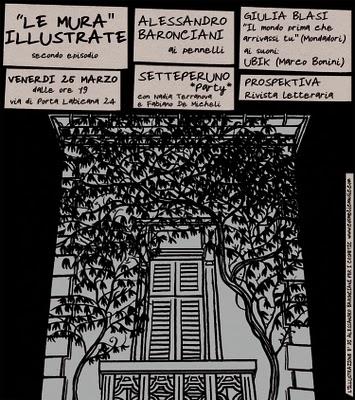 "LE MURA"
ILLUSTRATE
secondo episodio
VENERDI 25 MARZO
dalle ore 19
via di Porta Labicana 24
ALESSANDRO
BARONCIANI
ai pennelli
SETTEPERUNO
*party*
con Nadia Terranova
e Fabiano De Micheli
GIULIA BLASI
"Il mondo prima che
arrivassi tu" (Mondadori)
ai suoni:
UBIK (Marco Bonini)
PROSPEKTIVA
Rivista Letteraria